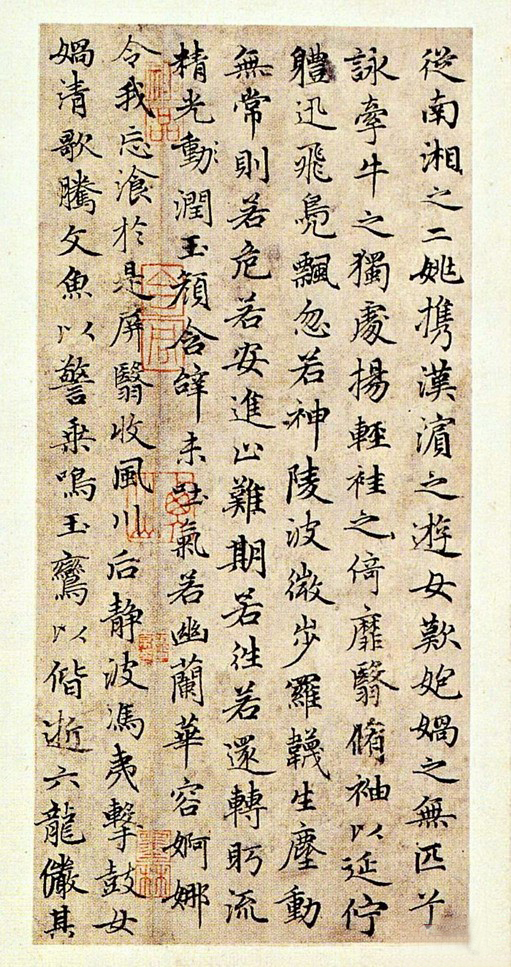 從南湘之二姚攜漢濵之遊女歎㚿媧之無匹兮
詠牽牛之獨處揚輕袿之倚靡翳脩袖以延佇
體迅飛鳧飄忽若神陵波微步羅韈生塵動
無常則若危若安進止難期若往若還轉眄流
精光動潤玉顔含辝未吐氣若幽蘭華容婀娜
令我忘飡於是屏翳收風川后静波馮夷擊鼓女
媧清歌騰文魚以警乗鳴玉鸞以偕逝六龍儼其
神品
墨林